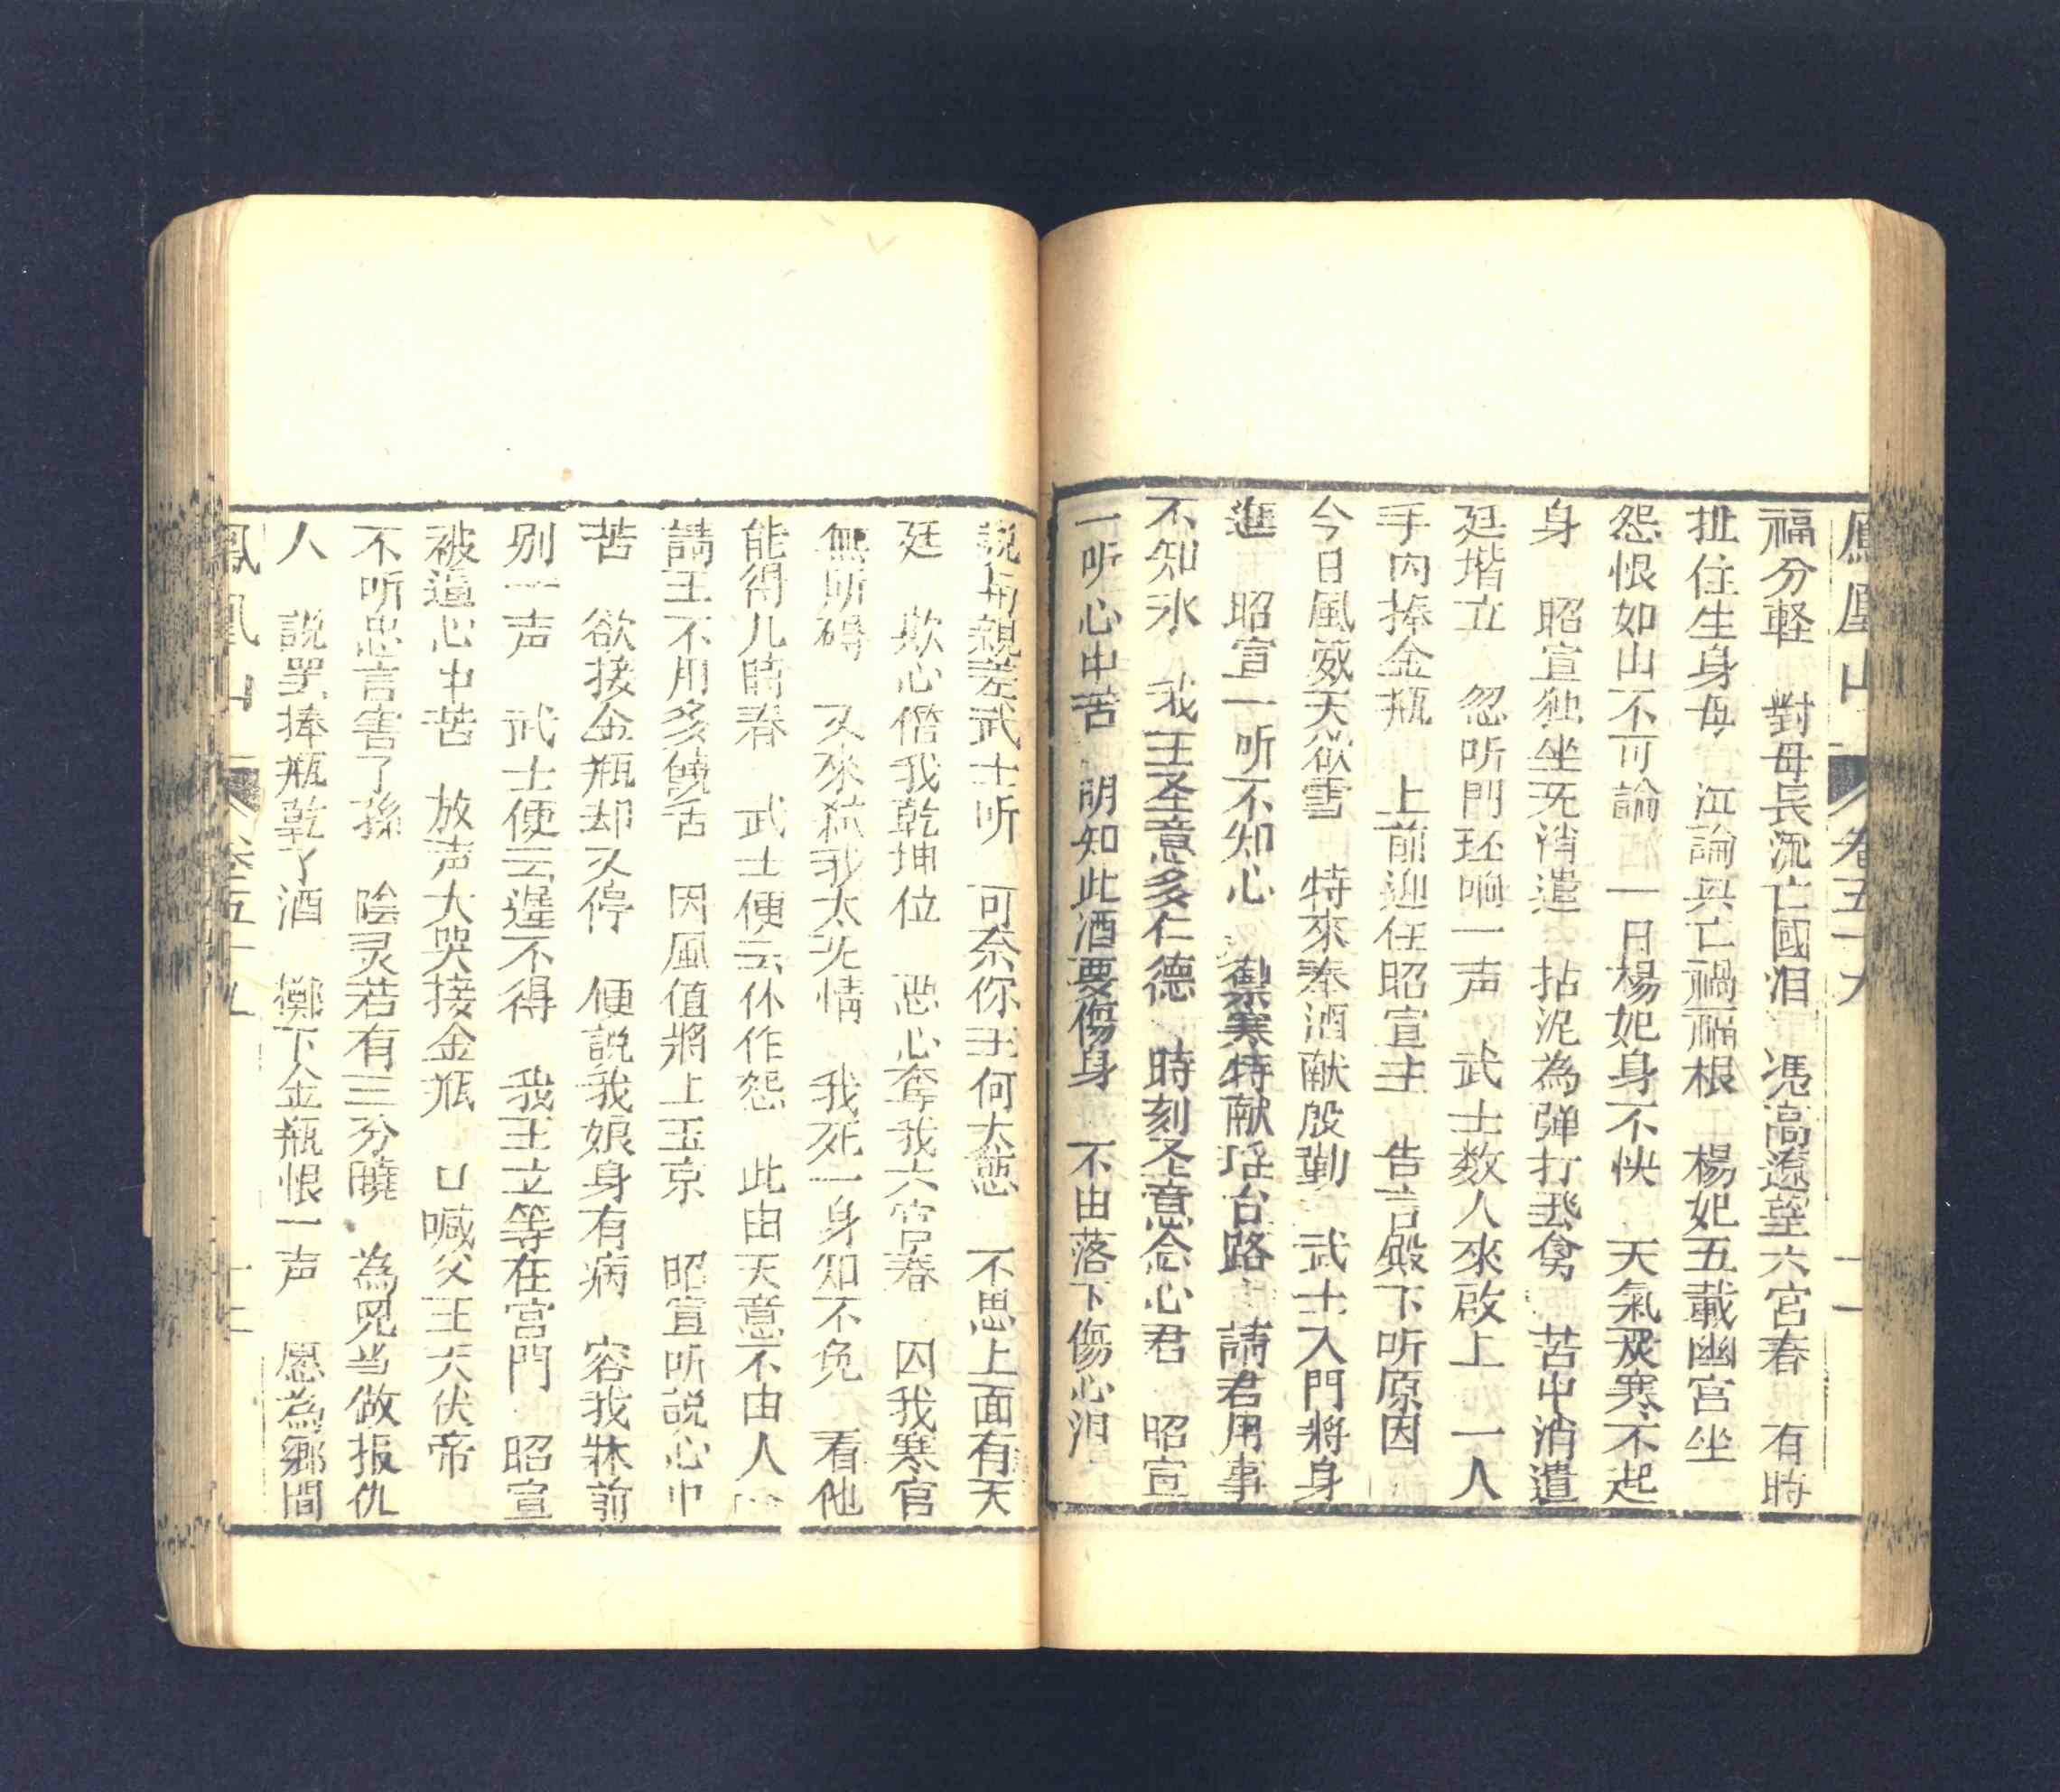 鳳凰山 卷五十九 十一
福分軽 對母長流亡國泪 憑高遼望六宮春 有時
扯住生身母 江論興亡禍福根 楊妃五載幽宮坐
怨恨如山不可論 一日楊妃身不快 天氣嚴寒不起
身 昭宣独坐旡消遣 拈泥為弹打飛禽 苦中消遣
廷堦立 忽听門环响一声 武士数人來啟上 一人
手内捧金瓶 上前迎住昭宣主 告言殿下听原因
今日風威天欲雪 特來奉酒献殷勤 武士入門將身
進 昭宣一听不知心 禦寒特献瑶台路 請君用事
不知氷 我王圣意多仁德 時刻圣意念心君 昭宣
一听心中苦 明知此酒要傷身 不由落下傷心泪
説与親差武士听 可奈你王何太愆 不思上面有天
廷 欺心僭我乾坤位 恶心奪我六宮春 囚我寒官
無所碍 又來煞我太旡情 我死一身知不免 看他
能得几時春 武士便云休作怨 此由天意不由人
請王不用多饒舌 因風值將上玉京 昭宣听説心中
苦 欲接金瓶却又停 便説我娘身有病 容我牀前
别一声 武士便云遅不得 我王立等在宮門 昭宣
被逼心中苦 放声大哭接金瓶 口喊父王天伏帝
不听忠言害了孫 陰灵若有三分曉 為児当做报仇
人 説罢捧瓶乾了酒 擲下金瓶恨一声 愿為鄉間
鳳凰山 卷五十九 十二